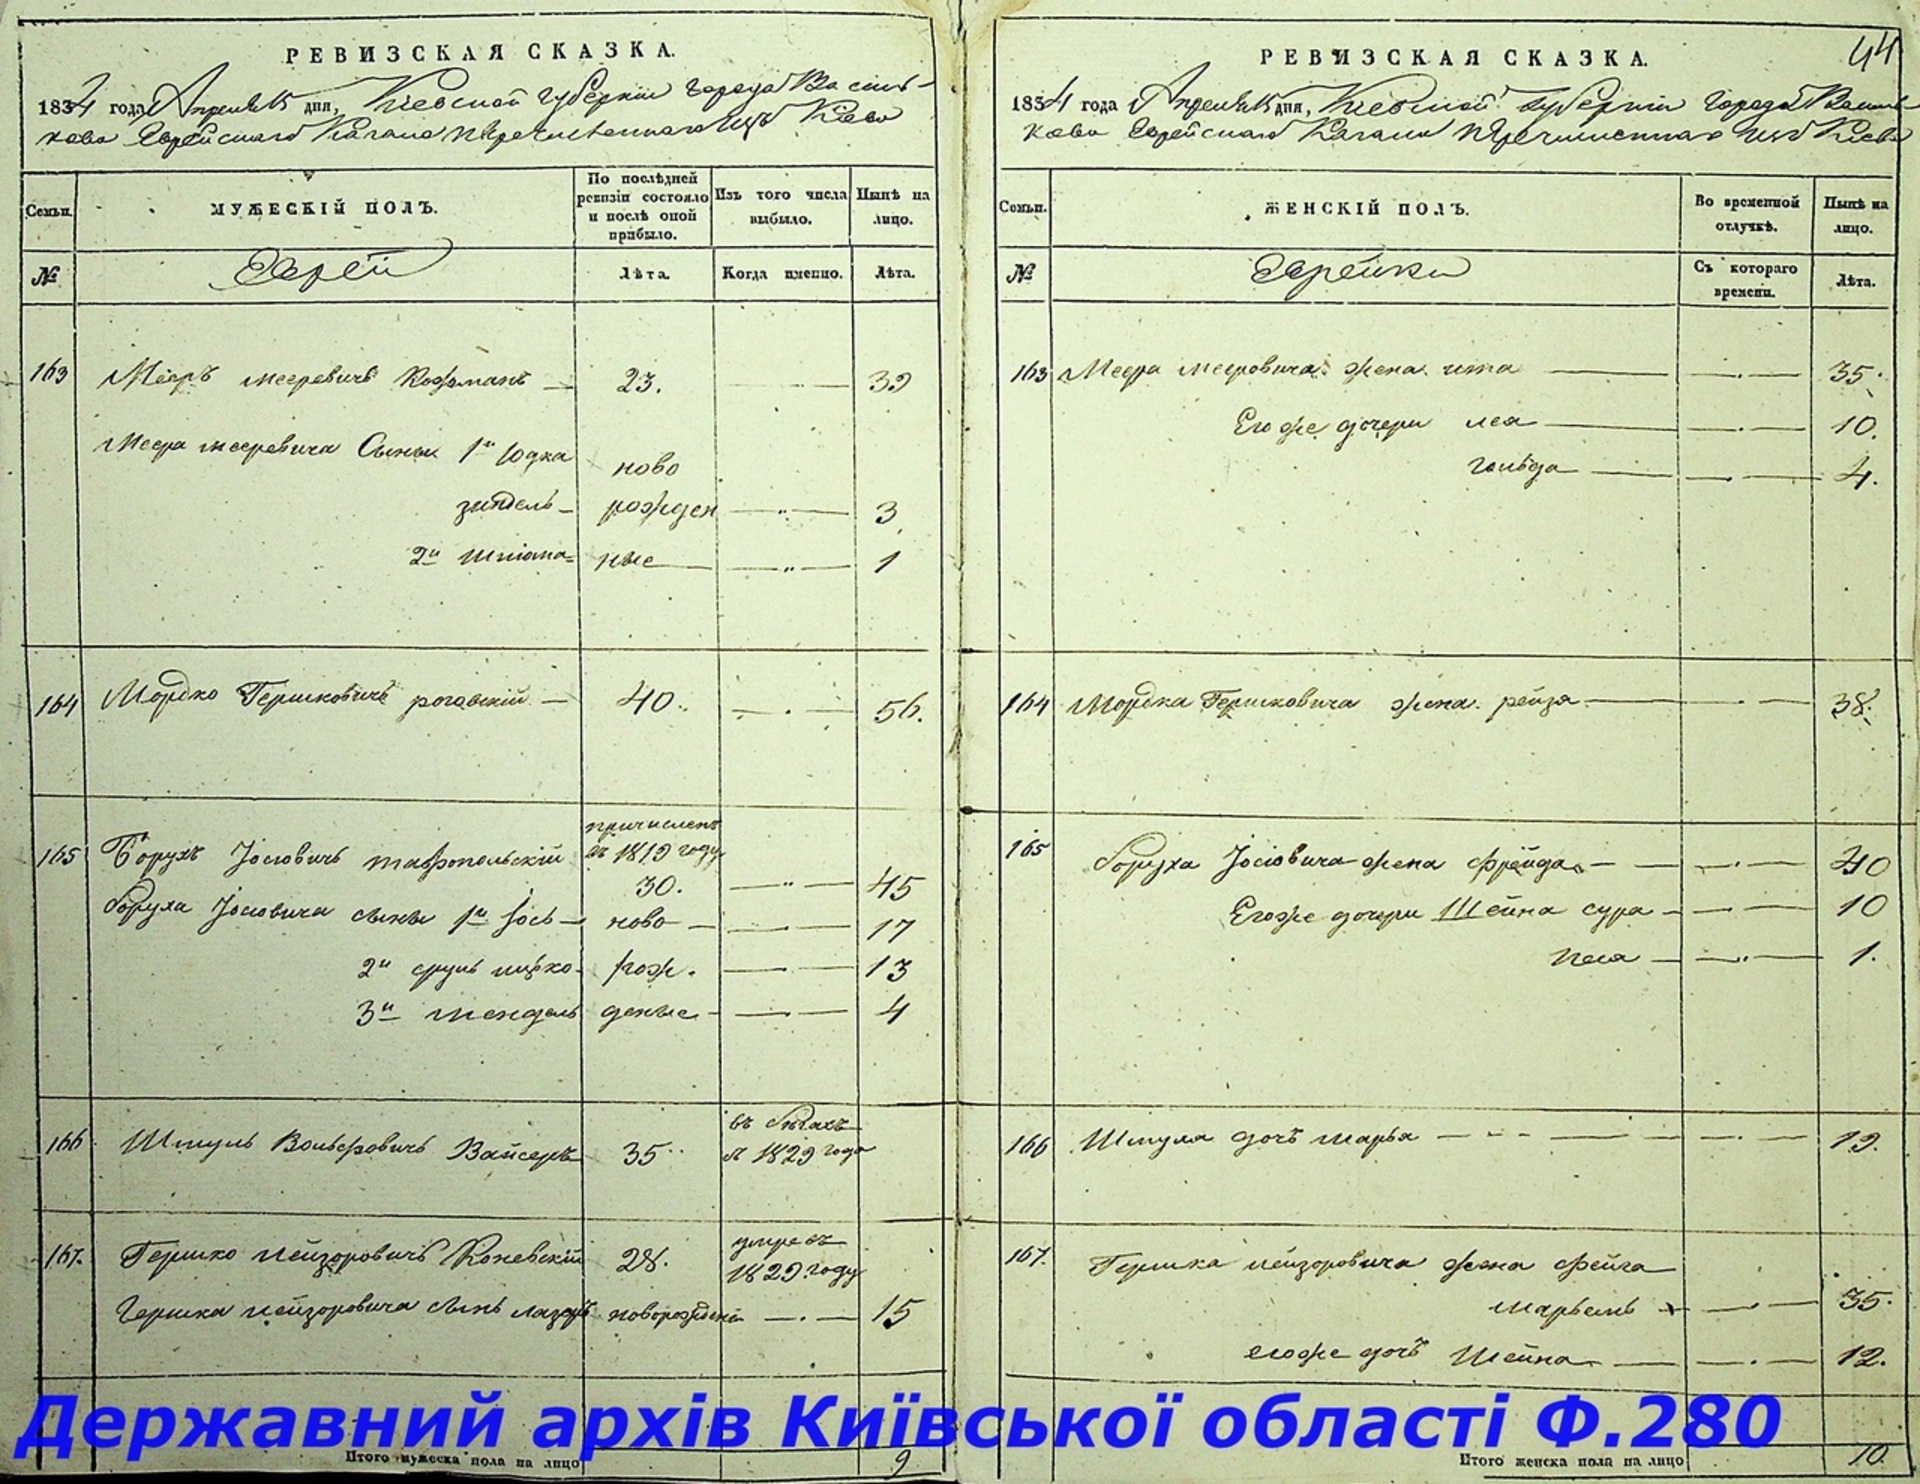 РЕВИЗСКАЯ СКАЗКА.
1834 года Апреля 15 дня, Киевской губернии города Василь-
кова Еврейского Кагала перечисленного изъ Киева
Семьи.
МУЖЕСКІЙ ПОЛЪ.
По послѣдней ревизіи состояло и послѣ оной прибыло.
Изъ того числа выбыло.
Нынѣ на лицо.
№
Еврей
Лѣта.
Когда именно.
Лѣта.
163 Мееръ меревичъ Кофманъ 23. 39
Меера мееревича Сыны 1й Юдка ново
зиндель рожден 3
2й ные 1
164 Мордко Гершковичъ роговскій 40. 56.
причисленъ
въ 1819 году
165 Борухъ Іосіовичъ тавропольскій 30. 45
Боруха Іосіовича сыны 1й Іось ново 17
2й сруль мирко рож. 13
3й мендель деные 4
въ бѣгахъ
166 Шмуль Вольфовичъ Вайсеръ 35 с 1829 года
умре въ
167. Гершко лейзоровичъ Коневскій 28. 1829 году
Гершка лейзоровича сынъ лазарь новорожденный 15
Итого мужеска пола на лицо 9
44
РЕВИЗСКАЯ СКАЗКА.
1834 года Апреля 15 дня, Киевской Губерніи Города Василь
кова Еврейского Кагала перечисленнаго изъ Киева
Семьи.
ЖЕНСКІЙ ПОЛЪ.
Во временной отлучкѣ.
Нынѣ на лицо.
№
Еврейки
Съ котораго времени.
Лѣта.
163 Меера мееровича жена ита 35.
Егоже дочери леа 10.
гольда 4.
164 Мордка Гершковича жена рейзя 38.
165 Боруха Іосіовича жена фрейда 40
Егоже дочери Шейна сура 10
песа 1.
166 Шмула дочь марья 19.
167. Гершка лейзоровича жена фейга
марьемъ 35.
егоже дочь Шейна 12.
Итого женска пола на лицо 10.
Державний архів Київської області Ф.280